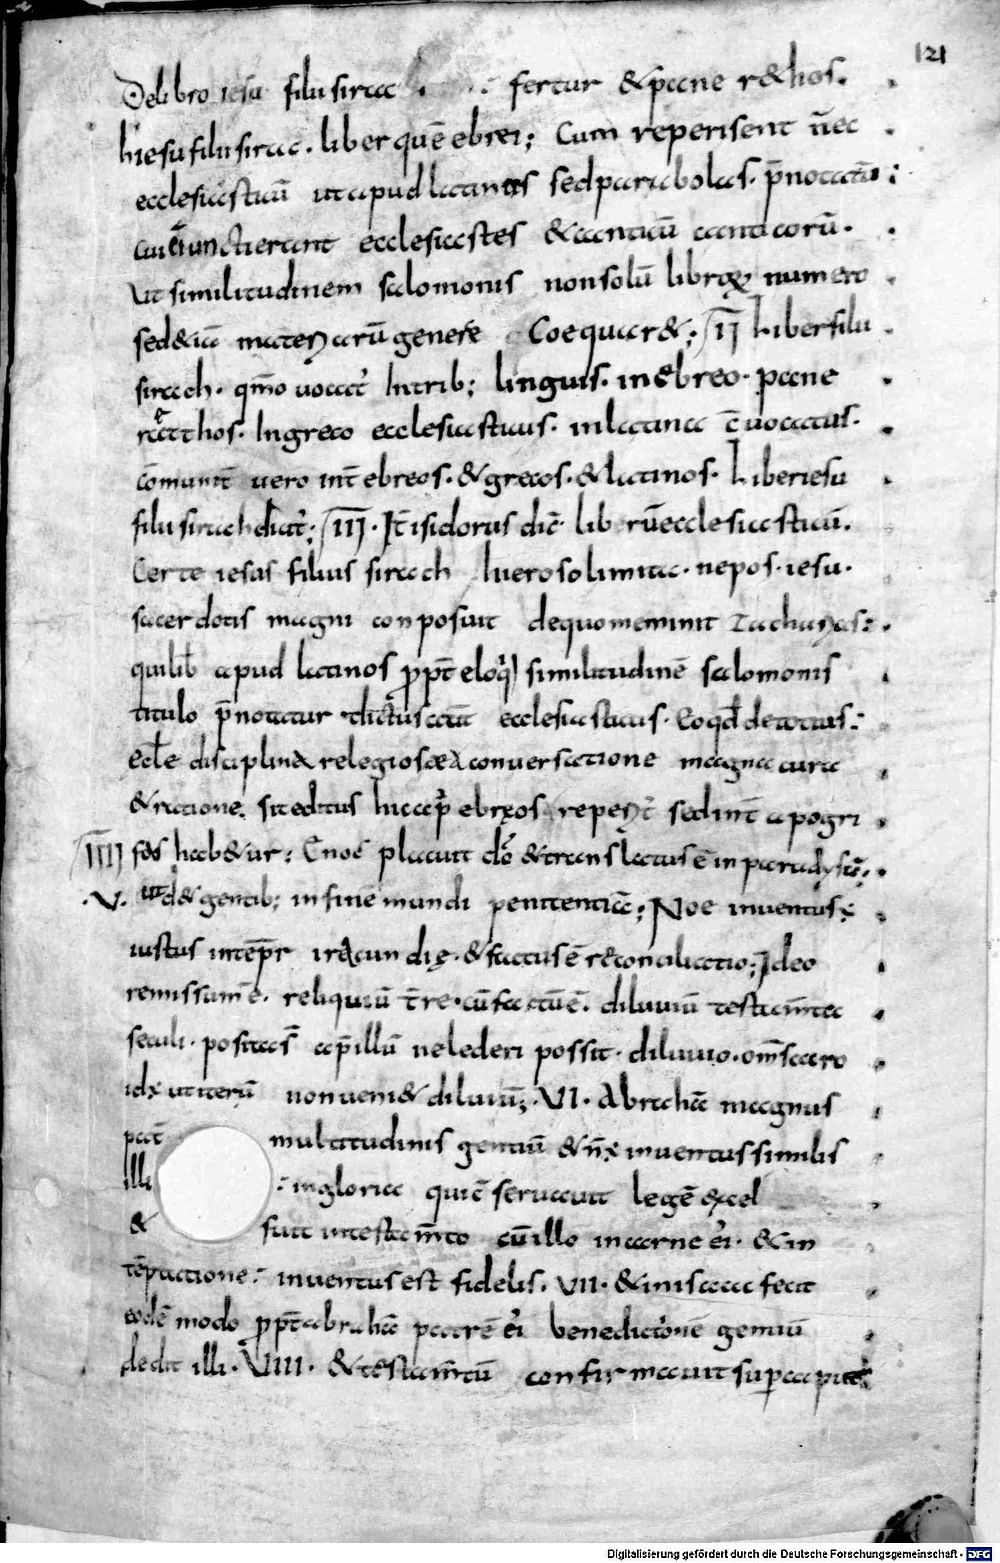 121
De libro iesu filii sirac fertur & pane r&hos.
hiesu filii sirac. liber quē ebrei; Cum reperisent ñec
ecclesiasticū ut apud latinos sed parabolas. p̄notatū:
cui eiunctierant ecclesiastes & canticū canticorū.
Ut similitudinem salomonis non solū librorum numero
sed &iā materiarū genere Coequar&; II Liber filii
sirach. qm̄o vocat' Intrib; linguis. in ebreo. pane
ratthos. In greco ecclesiasticus. in latina ē vocatus.
cōmunit̄ vero int̄ ebreos. & grecos. & latinos. Liber iesu
filii sirach dicit'; III. It̄ isidorus dic̄ lib rū ecclesiasticū.
Certe iesus filius sirach hierosolimita. nepos. iesu.
sacerdotis magni conposuit de quo meminit zacharias:.
qui lib apud latinos ꝓpt̄ eloq̄ similitudinē salomonis
titulo p̄notatur dictus autē ecclesiasticus. Eo qđ de totius:
eccłe disciplina relegiosa conversatione magna cura
& ratione. sit editus hic ap̄ ebręos reperit̄ sed int̄ apogri
fos hab&ur; IIII Enoc placuit dō & translatus ē in paradysū;.
.V. ut d& gentib; in fine mundi penitentiā; Noe inventus ÷
iustus in tēp̄r iracundię. & factus ē reconciliatio; Ideo
remissam ē. reliquiū t̄re. cū factū ē. diluviū testam̄ta
seculi. posita s̄ ap̄ illū ne lederi possit. diluvio. om̄s caro
id÷ ut iterū non veni& diluviū; .VI. Abrahā magnus
pat̄ multitudinis gentiū & ñ ÷ inventus similis
illi :in gloria qui c̄servavit legē excel
& fuit in testam̄to cū illo in carne ei'. & in
tēptatione: inventus est fidelis. VII. & in isaac fecit
eodē modo ꝓpt̄ abrahā patrē ei' benedictionē gentiū
dedit illi. VIII. & testam̄tū confirmavit sup caput
Digitalisierung gefördert durch die Deutsche Forschungsgemeinschaft - DFG